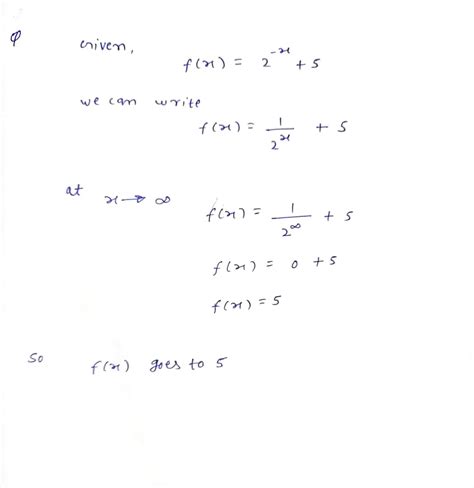 φ Given,
f(x) = 2^-x + 5
we can write
f(x) = 1/2^x + 5
at x → ∞ f(x) = 1/2^∞ + 5
f(x) = 0 + 5
f(x) = 5
So f(x) goes to 5